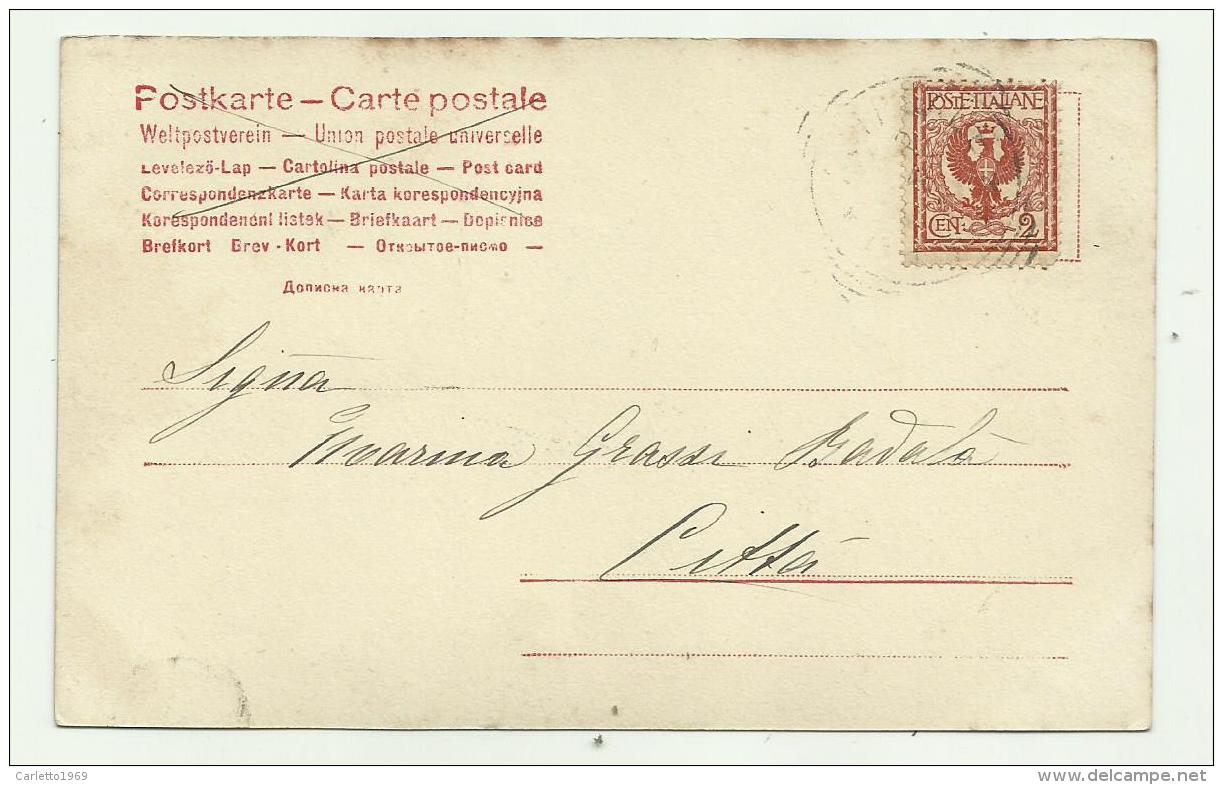 Postkarte — Carte postale
Weltpostverein — Union postale universelle
Levelező-Lap — Cartolina postale — Post card
Correspondenzkarte — Karta korespondencyjna
Korespondenční listek — Briefkaart — Dopisnice
Brefkort Brev-Kort — Открытое-письмо —
Дописна карта
POSTE·ITALIANE
CENT. 2
Signa
Grassi Badalà
Città
Carletto1969
delcampe.net